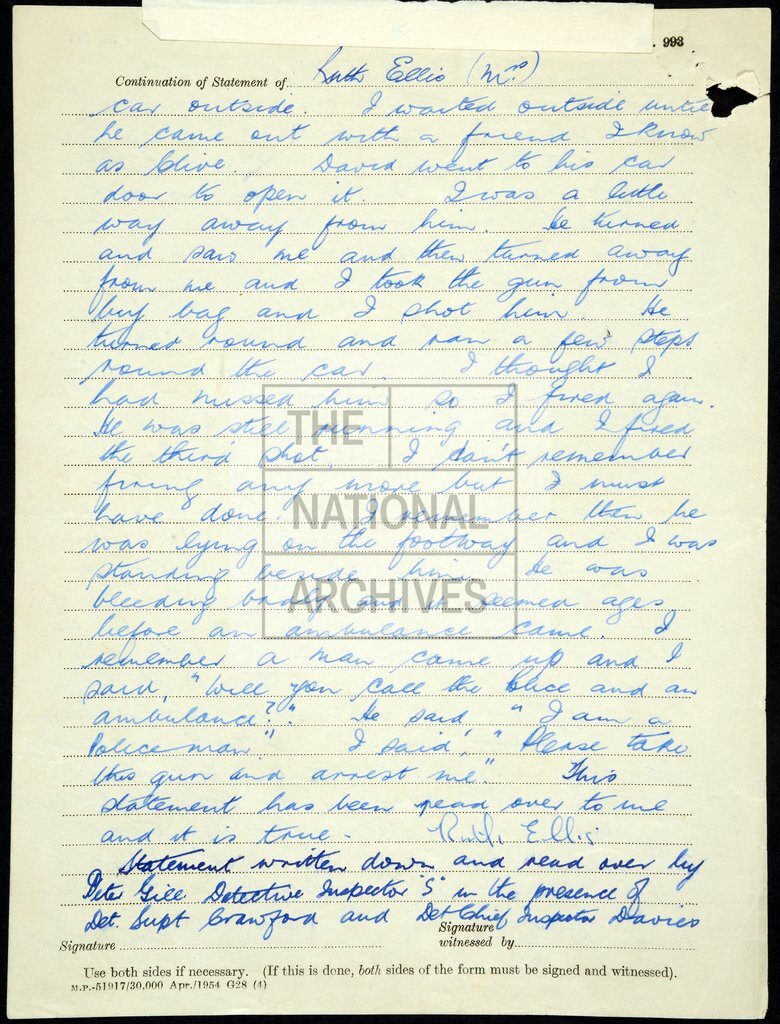 . 993
Continuation of Statement of Ruth Ellis (Mrs)
car outside. I waited outside until
he came out with a friend I know
as Clive. David went to his car
door to open it. I was a little
way away from him. He turned
and saw me and then turned away
from me and I took the gun from
my bag and I shot him. He
turned round and ran a few steps
round the car. I thought I
had missed him so I fired again.
He was still running and I fired
the third shot. I don't remember
firing any more but I must
have done. I remember then he
was lying on the footway and I was
standing beside him. He was
bleeding badly and it seemed ages
before an ambulance came. I
remember a man came up and I
said, "Will you call the Police and an
ambulance?" He said "I am a
Policeman." I said, "Please take
this gun and arrest me." This
statement has been read over to me
and it is true - Ruth Ellis.
Statement written down and read over by
Peter Gill Detective Inspector 'S' in the presence of
Det. Supt Crawford and Det Chief Inspector Davies
Signature
Signature witnessed by
Use both sides if necessary. (If this is done, both sides of the form must be signed and witnessed).
M.P.-51917/30,000 Apr./1954 G28 (4)
THE
NATIONAL
ARCHIVES